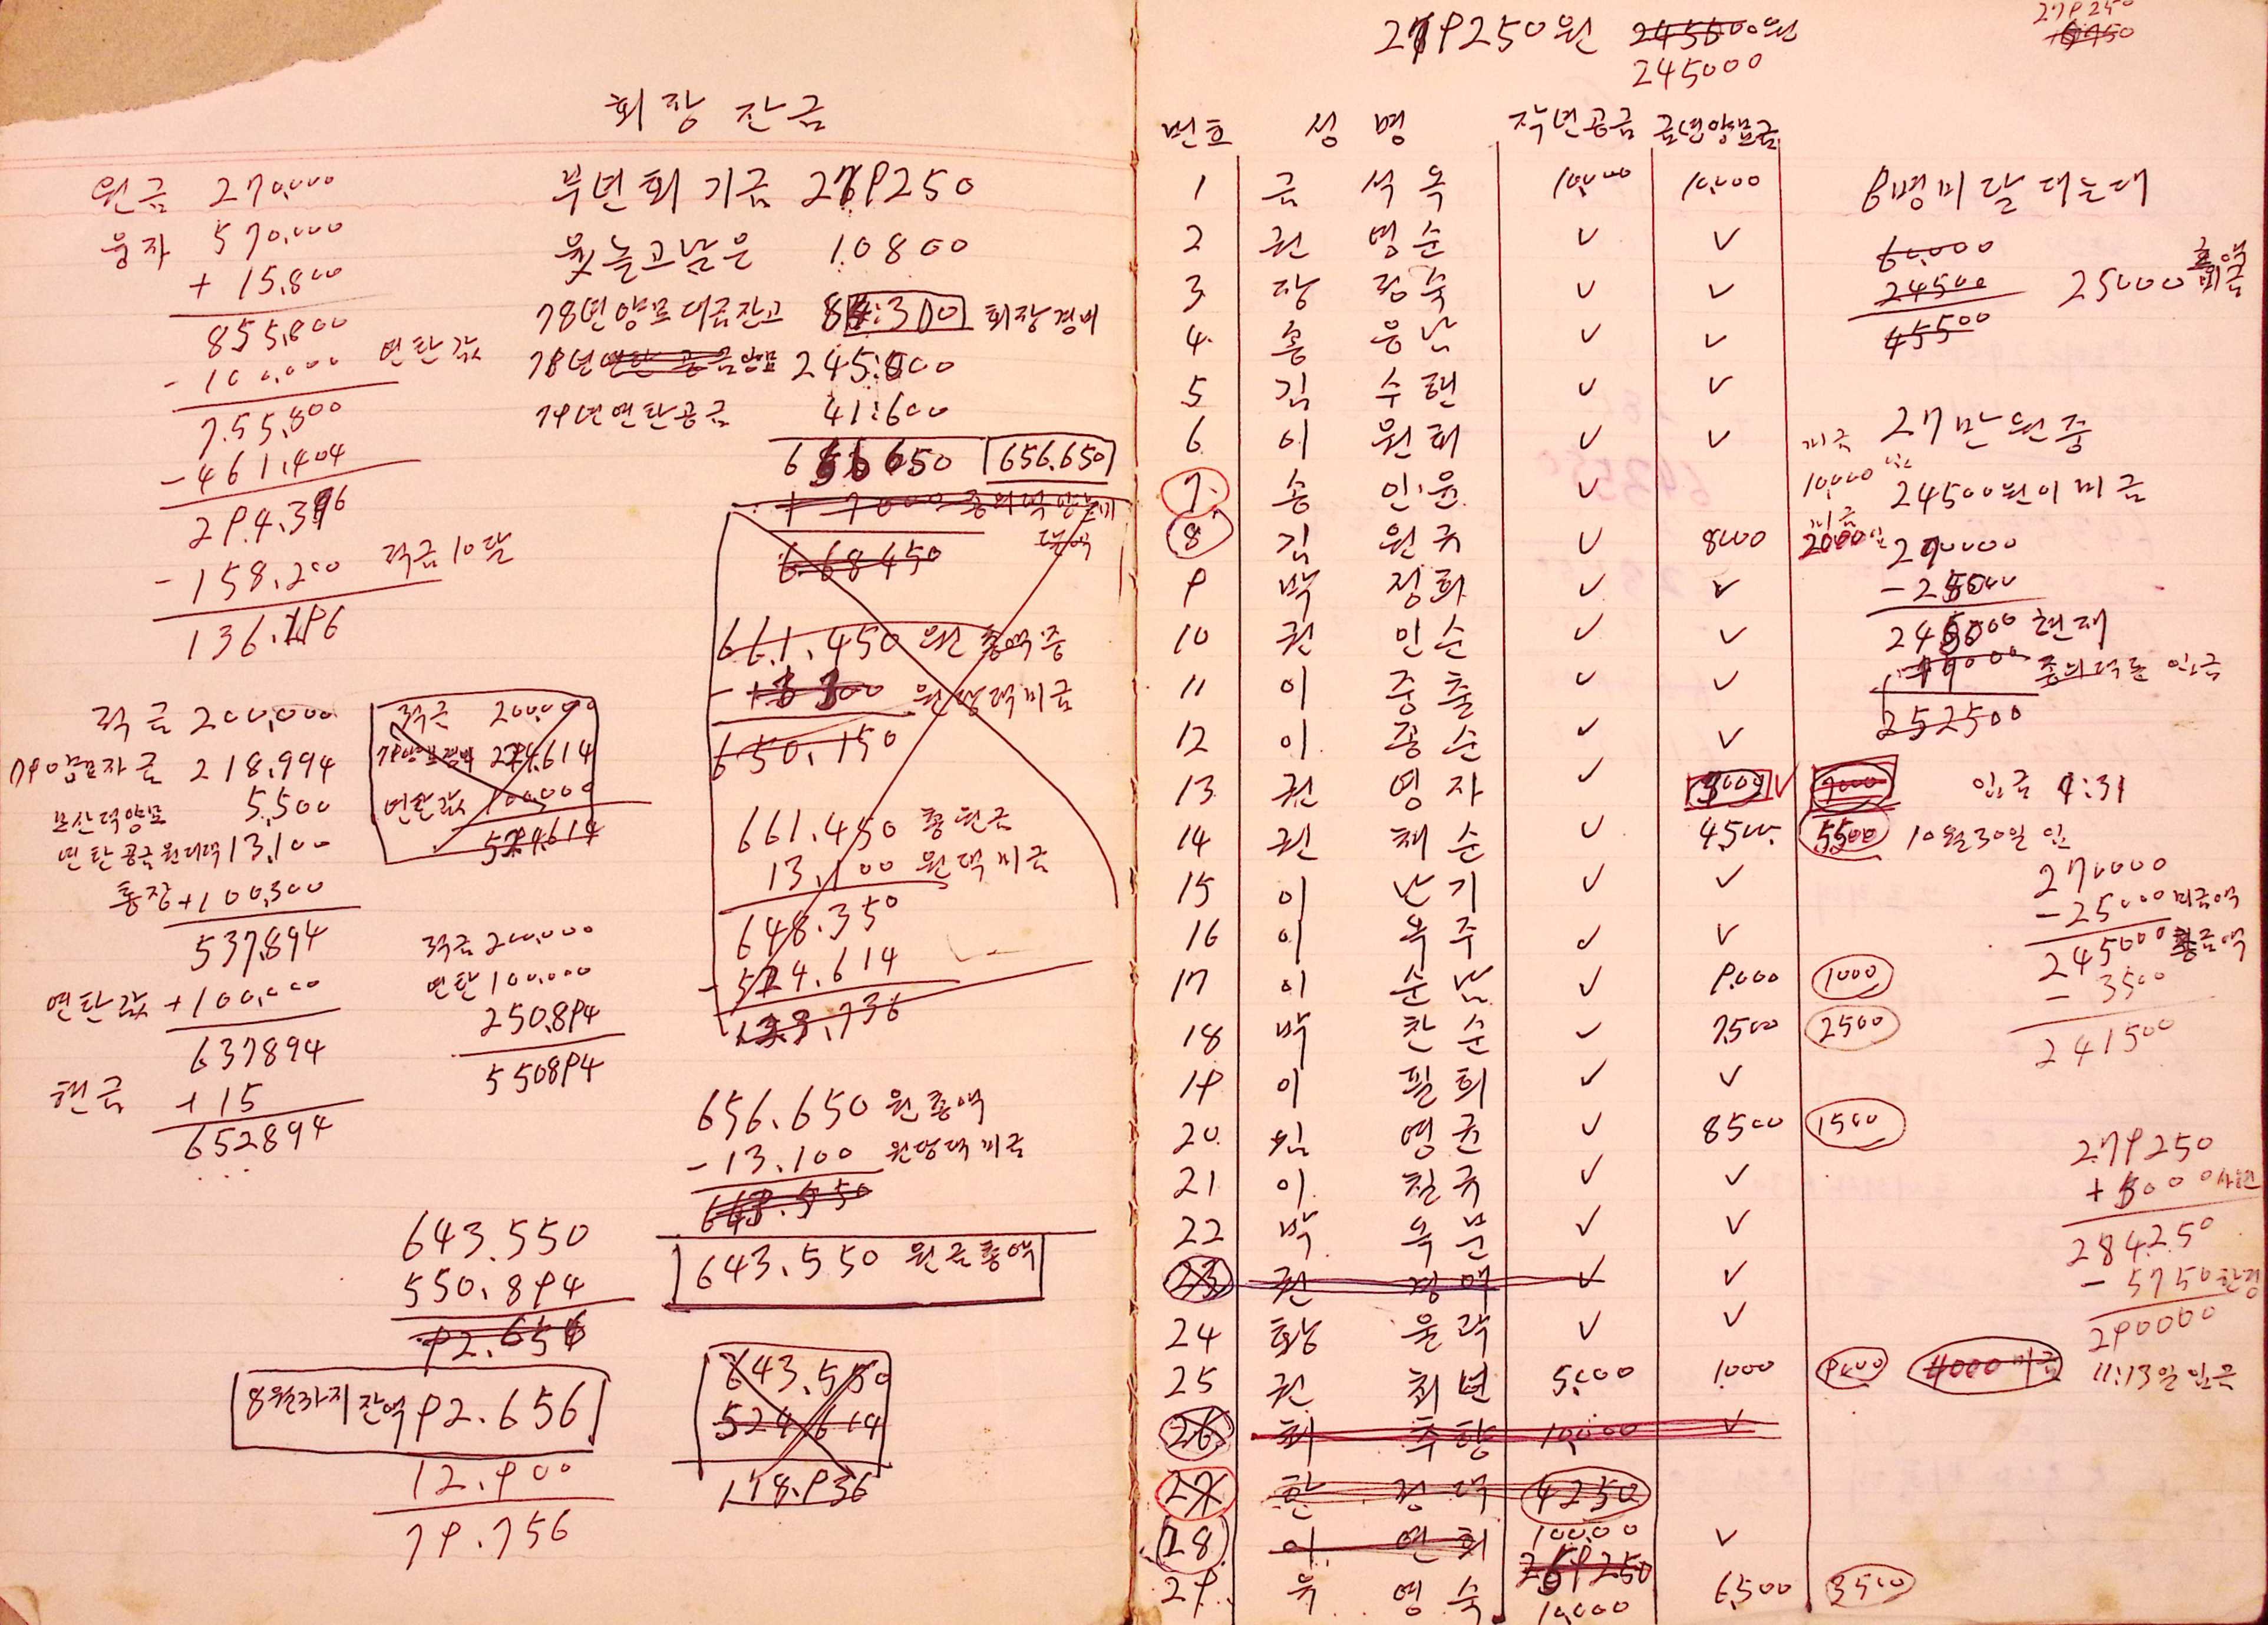 회장 잔금
원금 270,000
융자 570,000
+ 15,800
855,800
- 100,000 연탄 값
755,800
- 461,404
294,396
- 158,200 적금 10달
136,196
부년회 기금 279250
윷놀고남은 10800
78년양모대금잔고 84:300 회장경비
78년 245:000
79년연탄공금 41:600
656650 656.650
668450
661.450 원 총액중
650.150
661.450 총원금
13,100 원댁미금
648.350
- 524.614
133.736
적금 200,000
79양모자금 218,994
5,500
연탄공금원대댁 13,100
통장 +100,300
537,894
연탄값 +100,000
637894
현금 +15
652894
적금 200,000
224,614
연탄값 100,000
524,614
적금 200,000
연탄 100,000
250,894
550894
656.650 원총액
- 13.100 미금
643.550 원금총액
643.550
550.894
92.656
8월까지 잔액 92.656
12.900
79.756
643.550
524.614
118.936
279250원 245500원
245000
279250
번호 성명 작년공금 금년양모금
1 금석옥 10,000 10,000
2 권영순 ✓ ✓
3 장정숙 ✓ ✓
4 홍응남 ✓ ✓
5 김수현 ✓ ✓
6 이원회 ✓ ✓
7 송인윤 ✓
8 김원규 ✓ 8000 2000
9 박정희 ✓ ✓
10 권민순 ✓ ✓
11 이중출 ✓ ✓
12 이종순 ✓ ✓
13 권영자 ✓ 3000 ✓ 7000 입금 9:31
14 권채순 ✓ 4500 5500 10월30일 입
15 이난기 ✓ ✓
16 이옥주 ✓ ✓
17 이순남 ✓ 9.000 1000
18 박찬순 ✓ 7,500 2500
19 이필희 ✓ ✓
20 임영균 ✓ 8500 1500
21 이칠규 ✓ ✓
22 박옥분 ✓ ✓
23 권경매 ✓ ✓
24 황울락 ✓ ✓
25 권최년 5,000 1000 9000 4000미금 11:13일 입금
26 최추향 10,000 ✓
27 한정덕 4250
28 이연희 10000 ✓
269250
29 육영숙 10,000 6,500 3500
8명미달대는대
60,000
24500
45500
25000
27만원중
미금
10,000
24500원이미금
270000
- 25000
245000 현재
252500
270000
- 25000 미금액
245000
- 3500
241500
279250
+ 5000
284250
- 5750
290000